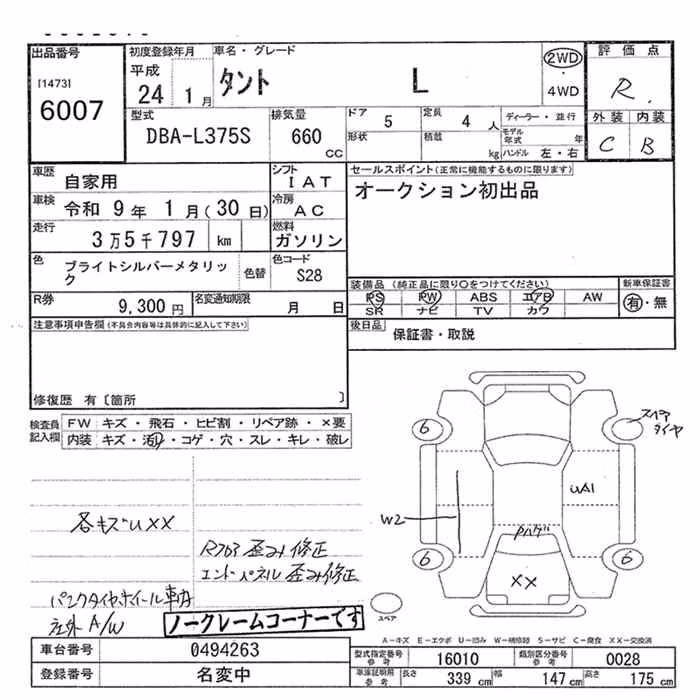 出品番号 初度登録年月 車名・グレード 2WD ・ 4WD 評価点
[1473] 平成 24 1月 タント L R
6007
型式 排気量 ドア 5 定員 4 人 ディーラー・並行 外装 内装
DBA-L375S 660 cc 形状 積載 kg モデル年式 年 ハンドル 左・右 C B
車歴 自家用 シフト IAT セールスポイント(正常に機能するものに限ります)
車検 令和 9年 1月(30日) 冷房 AC オークション初出品
走行 3万5千797 km 燃料 ガソリン
色 ブライトシルバーメタリック 色替 色コード S28
装備品 (純正品に限り○をつけてください) 新車保証書
PS PW ABS エアB AW 有・無
SR ナビ TV カワ
R券 9,300円 名変通知期限 月 日
後日品 保証書・取説
注意事項申告欄(本員会内容等は具体的に記入して下さい)
修復歴 有〔箇所 〕
検査員記入欄 FW キズ・飛石・ヒビ割・リペア跡・×要
内装 キズ・汚れ・コゲ・穴・スレ・キレ・破レ
6 スペアタイヤ
UA1
W2
Pハゲ
6 6
XX
各キズU XX
Rフロア歪み修正
エンドパネル歪み修正
パンクタイヤホイール車内
社外A/W
ノークレームコーナーです
スペア
A-キズ E-エクボ U-凹み W-補修跡 S-サビ C-腐食 XX-交換済
車台番号 0494263
登録番号 名変中
型式指定番号 参考 16010 類別区分番号 参考 0028
車庫証明用 参考 長さ 339 cm 幅 147 cm 高さ 175 cm